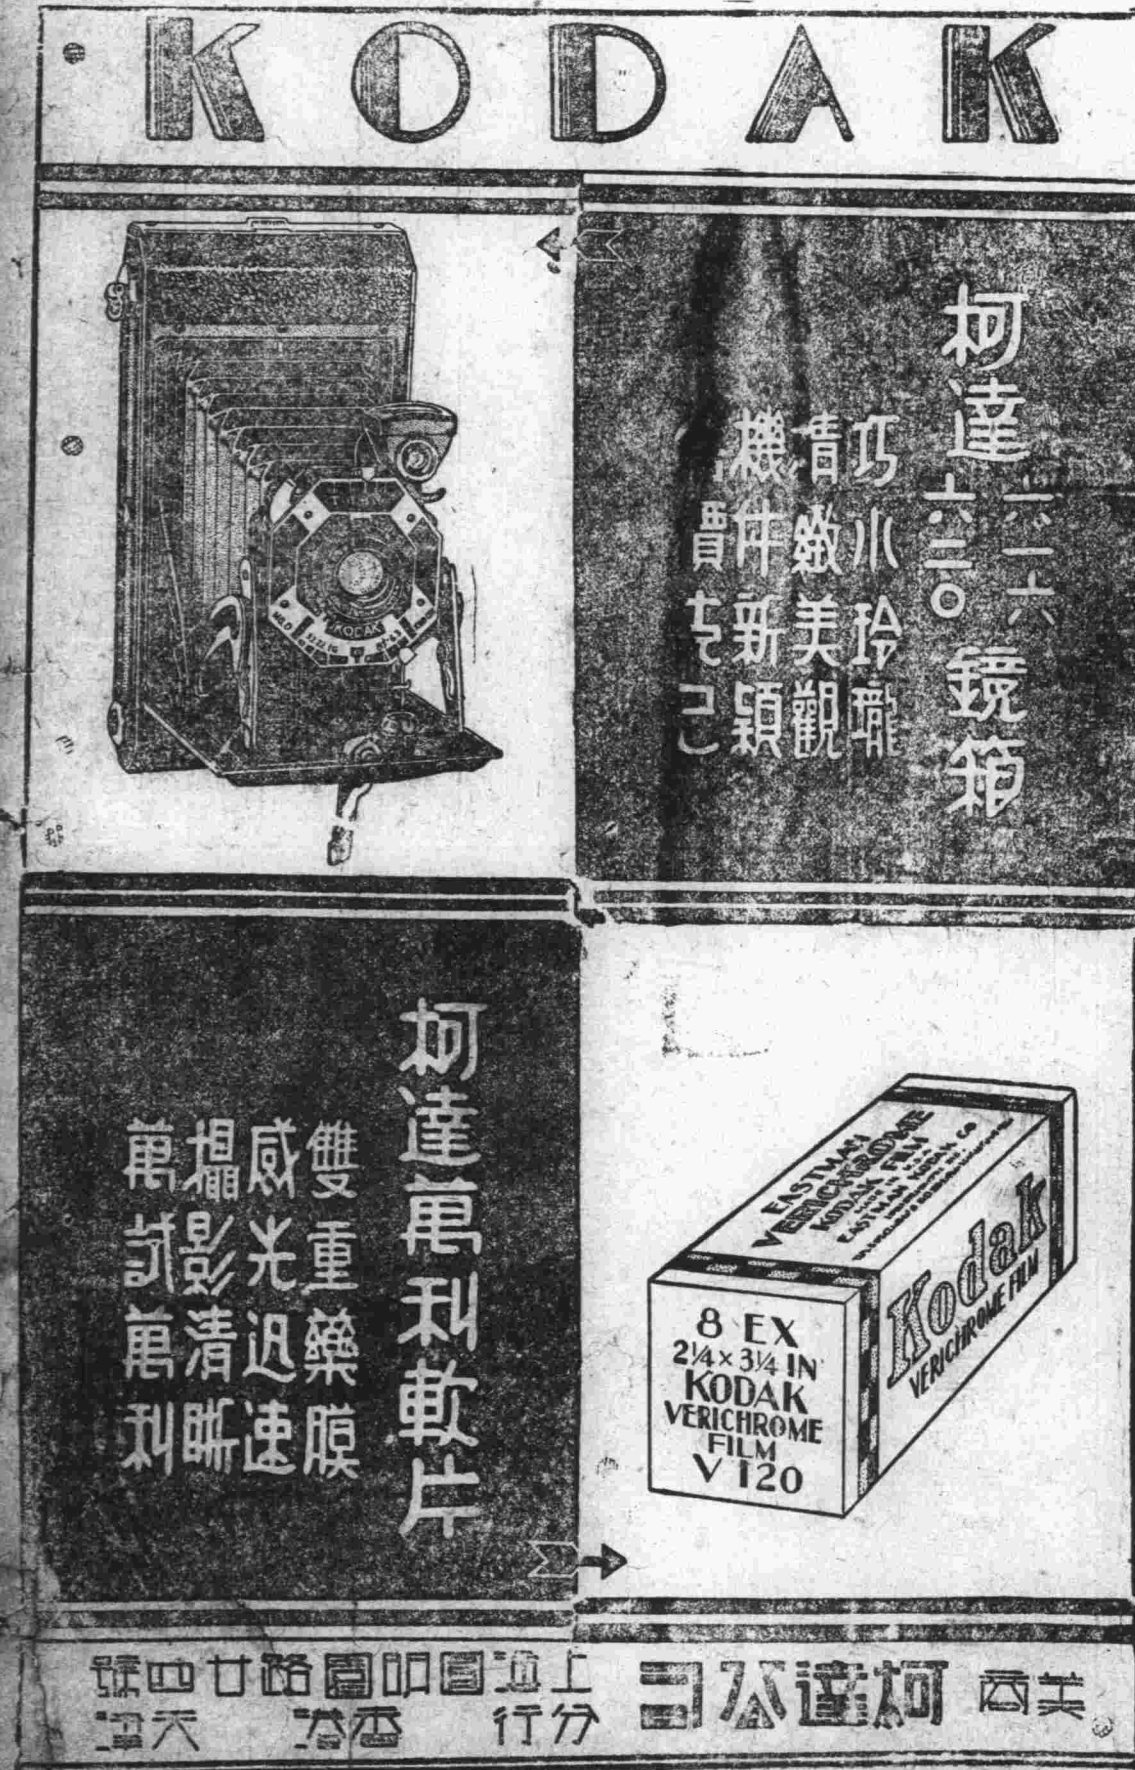 KODAK
柯達
六一六
六二〇
鏡箱
巧小玲瓏
精緻美觀
機件新穎
價
KODAK
柯達萬利軟片
雙重藥膜
感光迅速
攝影清晰
萬試萬利
EASTMAN
VERICHROME
KODAK FILM
MADE IN U.S.A.
EASTMAN KODAK CO
Kodak
VERICHROME FILM
8 EX
2¼ x 3¼ IN
KODAK
VERICHROME
FILM
V 120
美商
柯達公司
上海圓明園路廿四號
分行 香港 天津